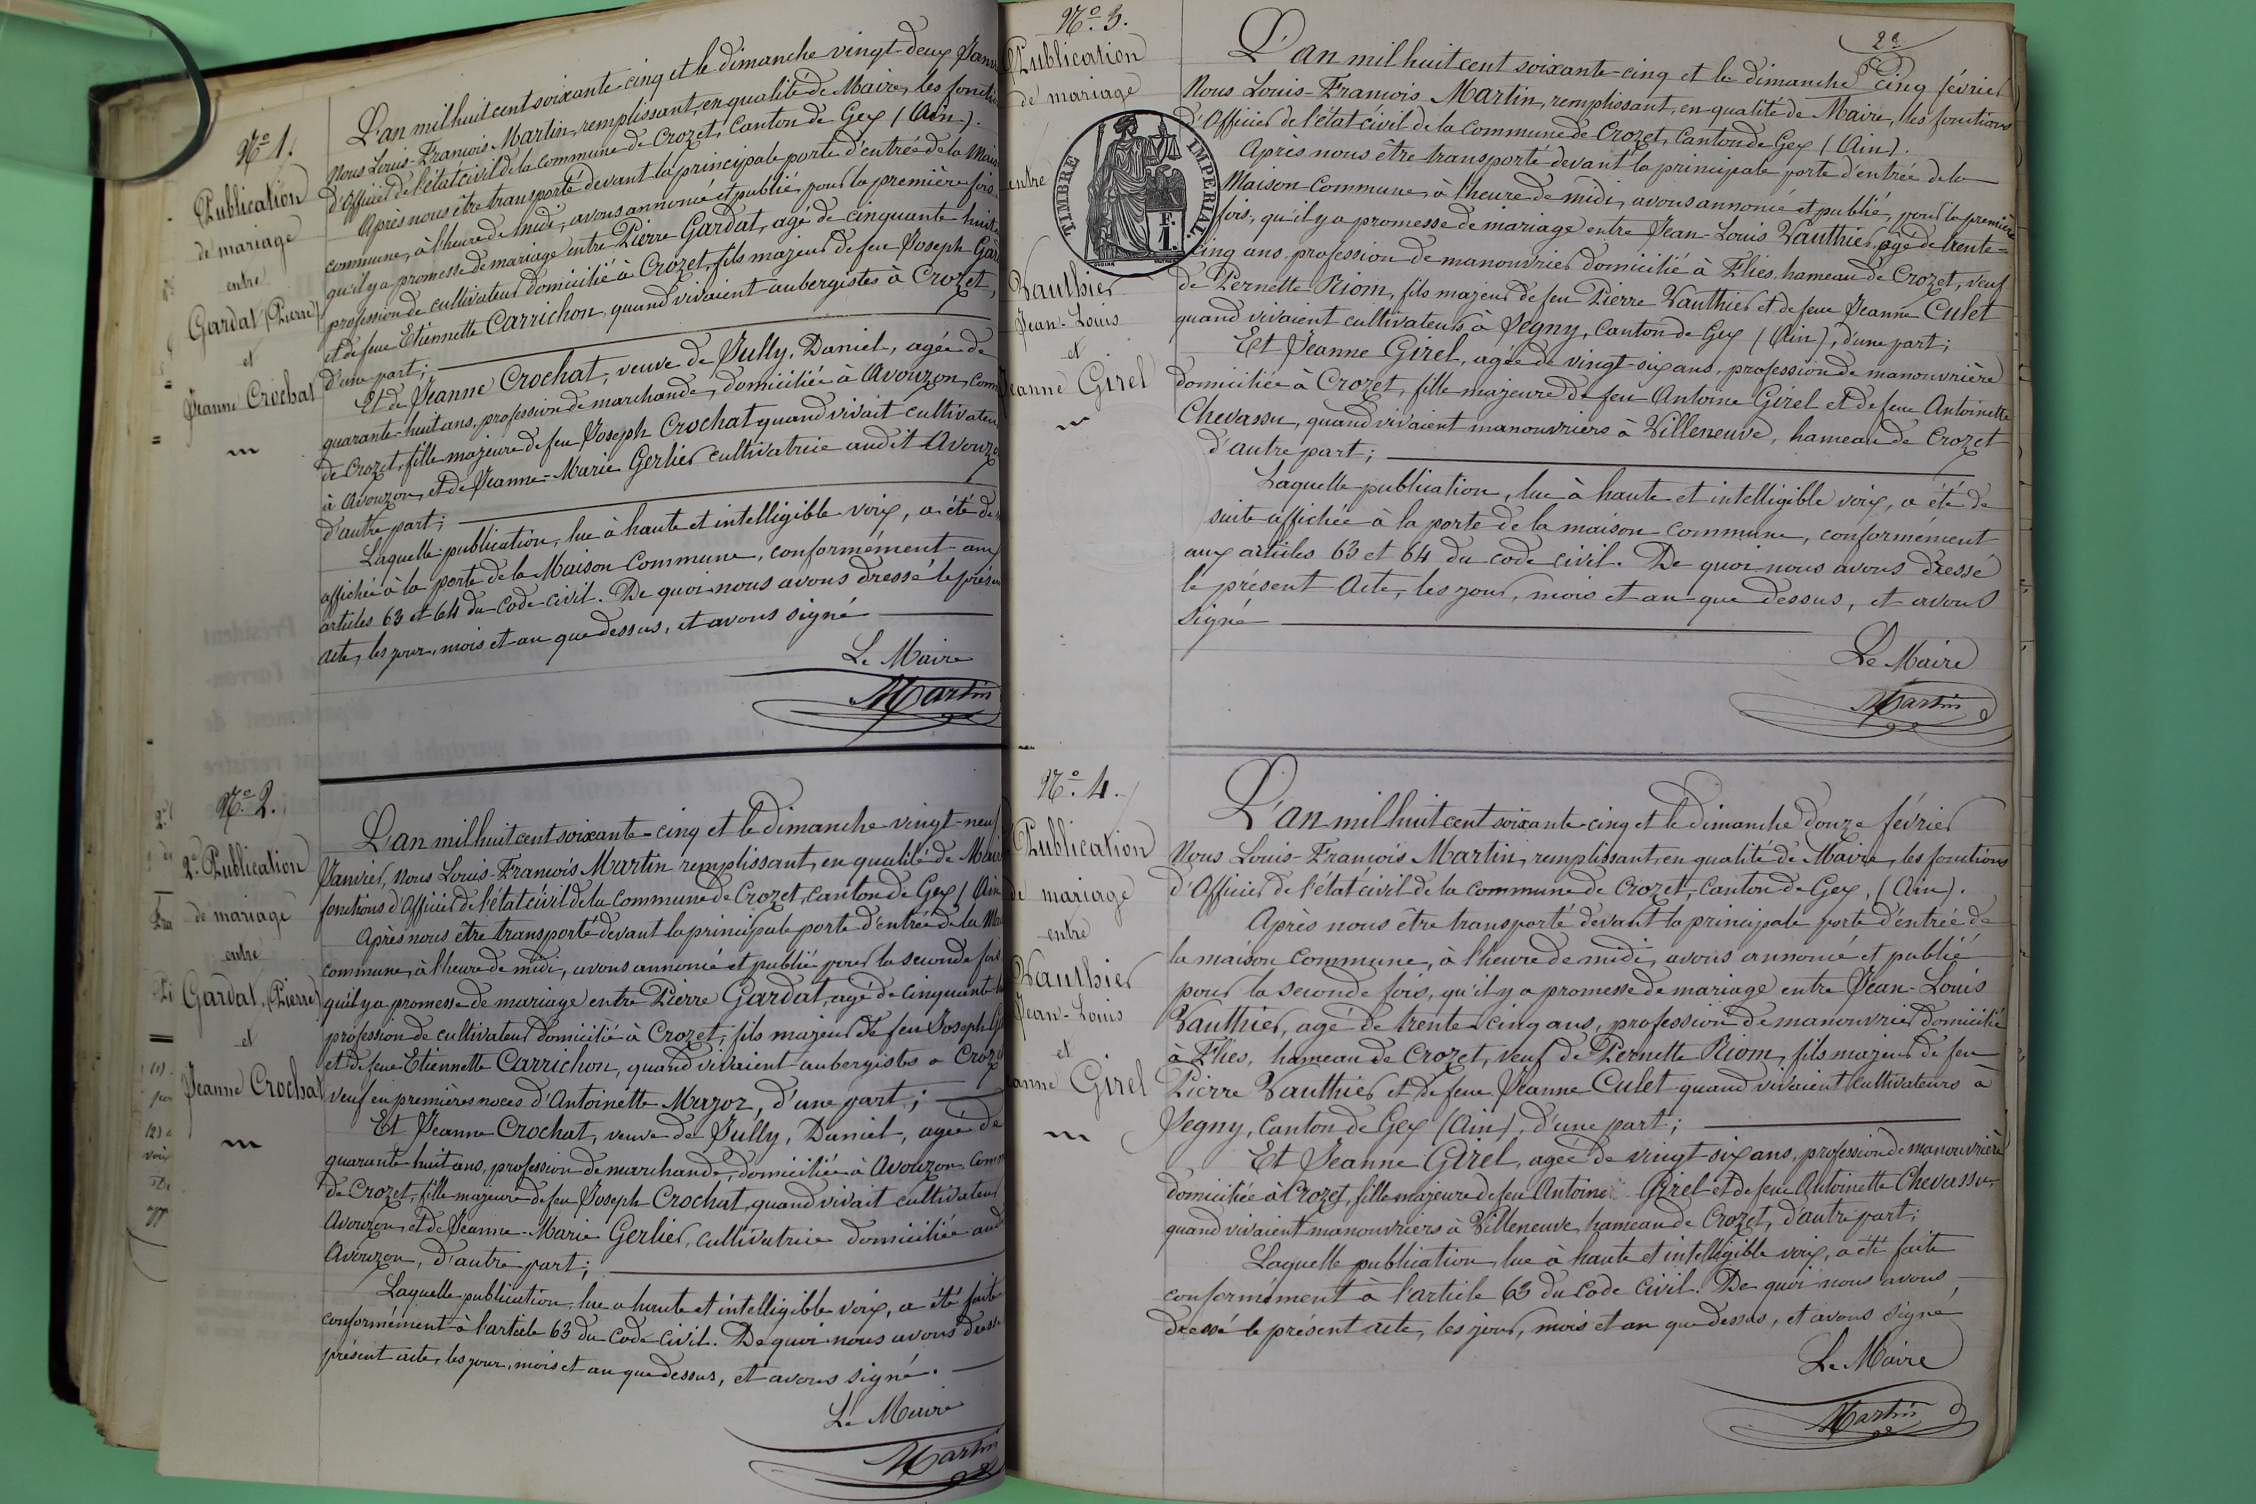 N.º 1.
Publication
de mariage
entre
Gardat (Pierre)
et
Jeanne Crochat
L'an mil huit cent soixante cinq et le dimanche vingt-deux Janv
Nous Louis-François Martin, remplissant, en qualité de Maire, les foncti
d'Officier de l'état civil de la commune de Crozet, Canton de Gex (Ain).
Après nous être transporté devant la principale porte d'entrée de la Mais
commune, à l'heure de midi, avons annoncé et publié, pour la première fois
qu'il y a promesse de mariage entre Pierre Gardat, agé de cinquante huit
profession de cultivateur domicilié à Crozet, fils majeur de feu Joseph Gar
et de feue Etiennette Carrichon, quand vivaient aubergistes à Crozet,
d'une part;
Et de Jeanne Crochat, veuve de Jully, Daniel, agée de
quarante-huit ans, profession de marchande, domiciliée à Avouzon, Com
de Crozet, fille majeure de feu Joseph Crochat quand vivait cultivateur
à Avouzon, et de Jeanne-Marie Gerlier cultivatrice audit Avouzo
d'autre part;
Laquelle publication, lue à haute et intelligible voix, a été de
affichée à la porte de la Maison Commune, conformément aux
articles 63 et 64 du code civil. De quoi nous avons dressé le prése
acte, les jour, mois et an que dessus, et avons signé
Le Maire
Martin
N.º 2.
2.e Publication
de mariage
entre
Gardat, (Pierre)
et
Jeanne Crochat
L'an mil huit cent soixante-cinq et le dimanche vingt-neuf
Janvier, nous Louis-François Martin remplissant, en qualité de Mair
fonctions d'Officier de l'état civil de la commune de Crozet, canton de Gex (Ain
Après nous être transporté devant la principale porte d'entrée de la Ma
commune, à l'heure de midi, avons annoncé et publié pour la seconde fois
qu'il y a promesse de mariage entre Pierre Gardat, agé de cinquante h
profession de cultivateur domicilié à Crozet, fils majeur de feu Joseph G
et de feue Etiennette Carrichon, quand vivaient aubergistes à Croz
veuf en premières noces d'Antoinette Mazoz, d'une part;
Et Jeanne Crochat, veuve de Jully, Daniel, agée de
quarante huit ans, profession de marchande, domiciliée à Avouzon Com
de Crozet, fille majeure de feu Joseph Crochat, quand vivait cultivateur
Avouzon, et de Jeanne-Marie Gerlier, cultivatrice domiciliée aud
Avouzon, d'autre part;
Laquelle publication, lue a haute et intelligible voix, a été faite
conformément à l'article 63 du Code civil. De quoi nous avons dressé
présent acte, les jour, mois et an que dessus, et avons signé.
Le Maire
Martin
2e
N.º 3.
Publication
de mariage
entre
Vauthier
Jean-Louis
et
Jeanne Girel
TIMBRE IMPERIAL
F.
1.
L'an mil huit cent soixante-cinq et le dimanche cinq février
Nous Louis-François Martin, remplissant, en qualité de Maire, les fonctions
d'Officier de l'état civil de la commune de Crozet, Canton de Gex (Ain).
Après nous être transporté devant la principale porte d'entrée de la
Maison Commune, à l'heure de midi, avons annoncé et publié, pour la première
fois, qu'il y a promesse de mariage entre Jean-Louis Vauthier, agé de trente-
cinq ans, profession de manouvrier domicilié à Flies, hameau de Crozet, veuf
de Pernette Riom, fils majeur de feu Pierre Vauthier et de feue Jeanne Culet
quand vivaient cultivateurs à Segny, Canton de Gex (Ain), d'une part;
Et Jeanne Girel, agée de vingt-six ans, profession de manouvrière
domiciliée à Crozet, fille majeure de feu Antoine Girel et de feue Antoinette
Chevassu, quand vivaient manouvriers à Villeneuve, hameau de Crozet
d'autre part;
Laquelle publication, lue à haute et intelligible voix, a été de
suite affichée à la porte de la maison commune, conformément
aux articles 63 et 64 du code civil. De quoi nous avons dressé
le présent Acte, les jour, mois et an que dessus, et avons
signé
Le Maire
Martin
N.º 4.
Publication
de mariage
entre
Vauthier
Jean-Louis
et
Jeanne Girel
L'an mil huit cent soixante-cinq et le dimanche douze février
Nous Louis-François Martin, remplissant, en qualité de Maire, les fonctions
d'Officier de l'état civil de la commune de Crozet, Canton de Gex, (Ain).
Après nous être transporté devant la principale porte d'entrée de
la maison commune, à l'heure de midi, avons annoncé et publié
pour la seconde fois, qu'il y a promesse de mariage entre Jean-Louis
Vauthier, agé de trente cinq ans, profession de manouvrier domicilié
à Flies, hameau de Crozet, veuf de Pernette Riom, fils majeur de feu
Pierre Vauthier et de feue Jeanne Culet quand vivaient cultivateurs à
Segny, Canton de Gex (Ain), d'une part;
Et Jeanne Girel, agée de vingt-six ans, profession de manouvrière
domiciliée à Crozet, fille majeure de feu Antoine Girel et de feue Antoinette Chevassu
quand vivaient manouvriers à Villeneuve, hameau de Crozet, d'autre part;
Laquelle publication, lue à haute et intelligible voix, a été faite
conformément à l'article 63 du Code Civil. De quoi nous avons
dressé le présent acte, les jour, mois et an que dessus, et avons signé
Le Maire
Martin